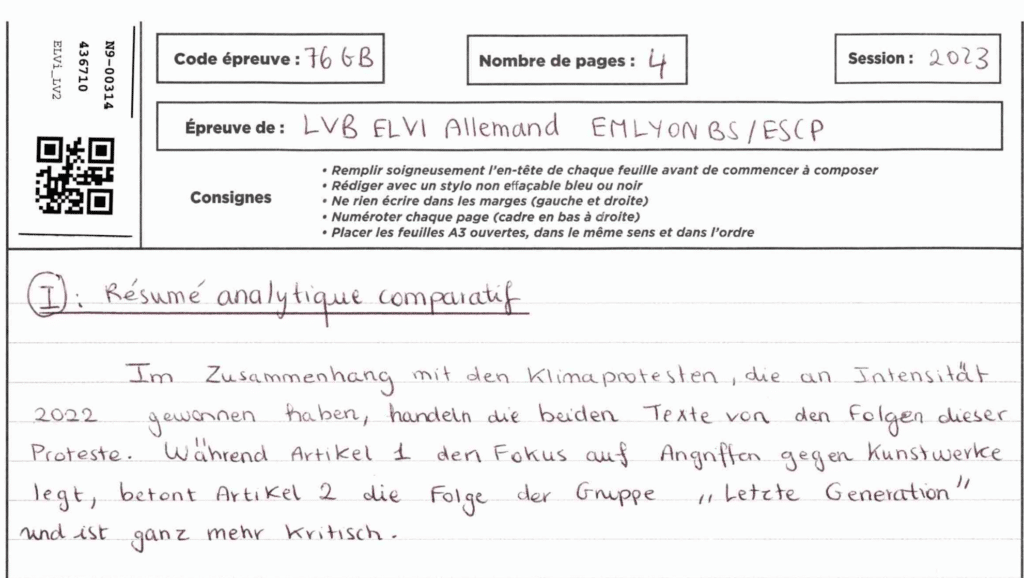 N9-00314
436710
ELVi_LV2
Code épreuve : 76 GB
Nombre de pages : 4
Session : 2023
Épreuve de : LVB ELVI Allemand EMLYON BS / ESCP
Consignes
• Remplir soigneusement l'en-tête de chaque feuille avant de commencer à composer
• Rédiger avec un stylo non effaçable bleu ou noir
• Ne rien écrire dans les marges (gauche et droite)
• Numéroter chaque page (cadre en bas à droite)
• Placer les feuilles A3 ouvertes, dans le même sens et dans l'ordre
I : Résumé analytique comparatif
Im Zusammenhang mit den Klimaprotesten, die an Intensität
2022 gewonnen haben, handeln die beiden Texte von den Folgen dieser
Proteste. Während Artikel 1 den Fokus auf Angriffen gegen Kunstwerke
legt, betont Artikel 2 die Folge der Gruppe „Letzte Generation"
und ist ganz mehr kritisch.